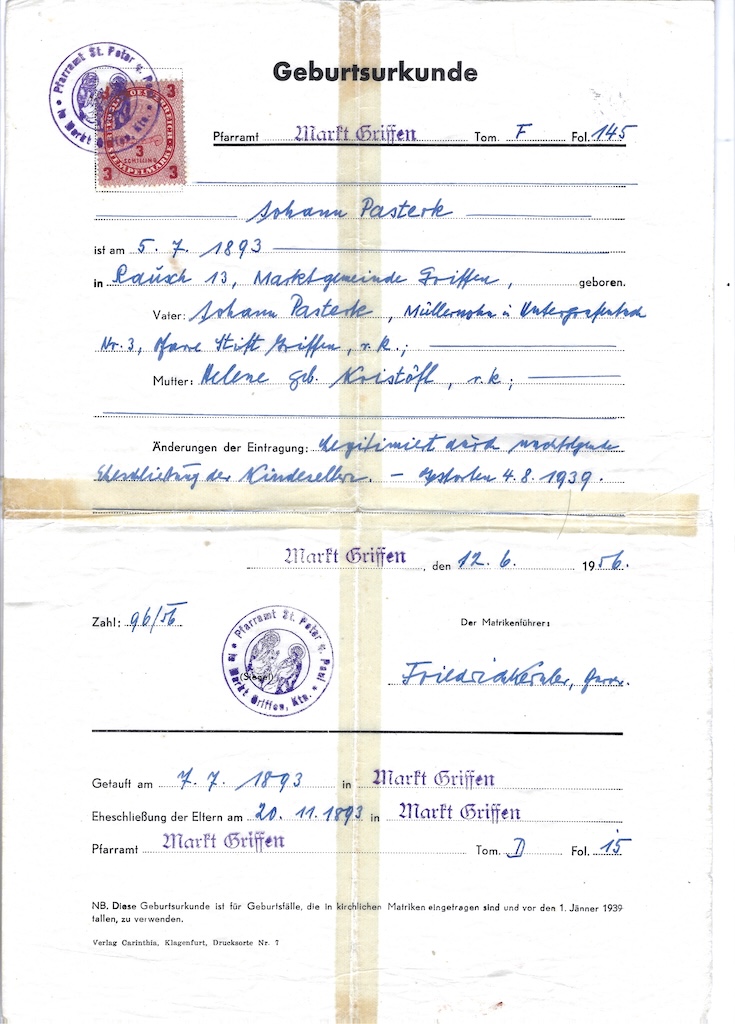 Pfarramt St. Peter u. Paul in Markt Griffen, Ktn.
3 3
3
SCHILLING
STEMPELMARKE
3 3
Geburtsurkunde
Pfarramt Markt Griffen Tom. F Fol. 145
Johann Pasterk
ist am 5. 7. 1893
in Rausch 13, Marktgemeinde Griffen, geboren.
Vater: Johann Pasterk, Müllersohn in
Nr. 3, Pfarre Stift Griffen, r. k.;
Mutter: Helene geb. Kristöfl, r. k.;
Änderungen der Eintragung: Legitimiert durch nachfolgende
Eheschließung der Kindeseltern. – Gestorben 4. 8. 1939.
Markt Griffen, den 12. 6. 1956.
Zahl: 96/56
Der Matrikenführer:
Pfarramt St. Peter u. Paul in Markt Griffen, Ktn.
(Siegel)
Friedrich
Getauft am 7. 7. 1893 in Markt Griffen
Eheschließung der Eltern am 20. 11. 1893 in Markt Griffen
Pfarramt Markt Griffen Tom. D Fol. 15
NB. Diese Geburtsurkunde ist für Geburtsfälle, die in kirchlichen Matriken eingetragen sind und vor den 1. Jänner 1939
fallen, zu verwenden.
Verlag Carinthia, Klagenfurt, Drucksorte Nr. 7